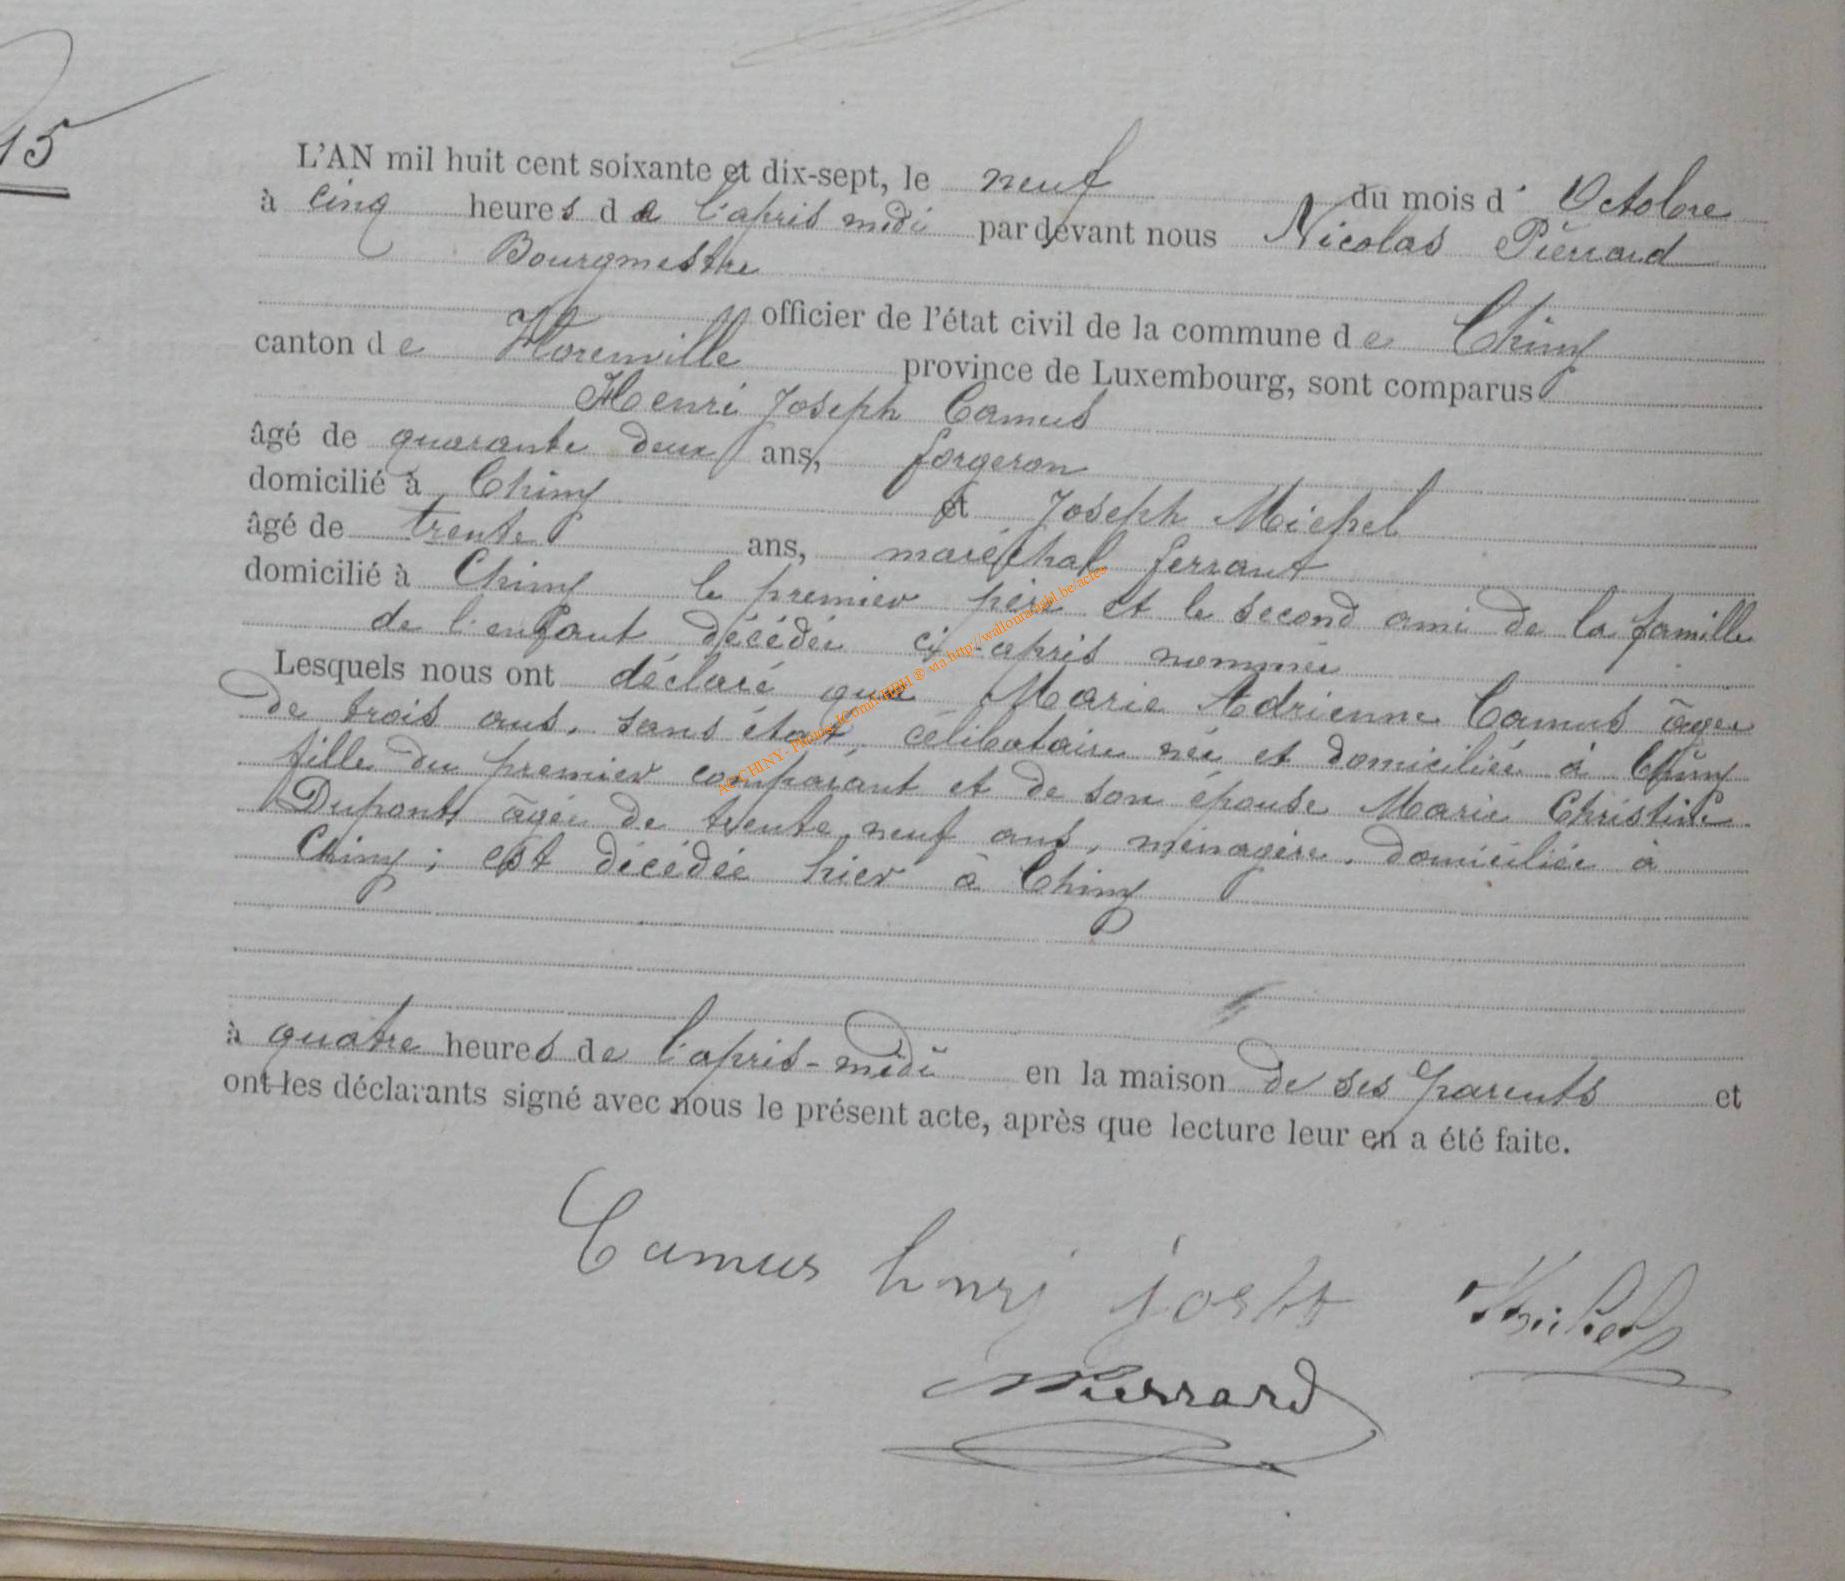 15
L'AN mil huit cent soixante et dix-sept, le neuf du mois d' Octobre
à cinq heures de l'après midi par devant nous Nicolas Pierrard
Bourgmestre
officier de l'état civil de la commune de Chiny
canton de Florenville province de Luxembourg, sont comparus
Henri Joseph Camus
âgé de quarante deux ans, forgeron
domicilié à Chiny et Joseph Michel
âgé de trente ans, maréchal ferrant
domicilié à Chiny le premier père et le second ami de la famille
de l'enfant décédée ci-après nommée
Lesquels nous ont déclaré que Marie Adrienne Camus âgée
de trois ans, sans état, célibataire née et domiciliée à Chiny
fille du premier comparant et de son épouse Marie Christine
Dupont, âgée de trente neuf ans, ménagère, domiciliée à
Chiny; est décédée hier à Chiny
à quatre heures de l'après-midi en la maison de ses parents et
ont les déclarants signé avec nous le présent acte, après que lecture leur en a été faite.
Camus henri Michel
Pierrard